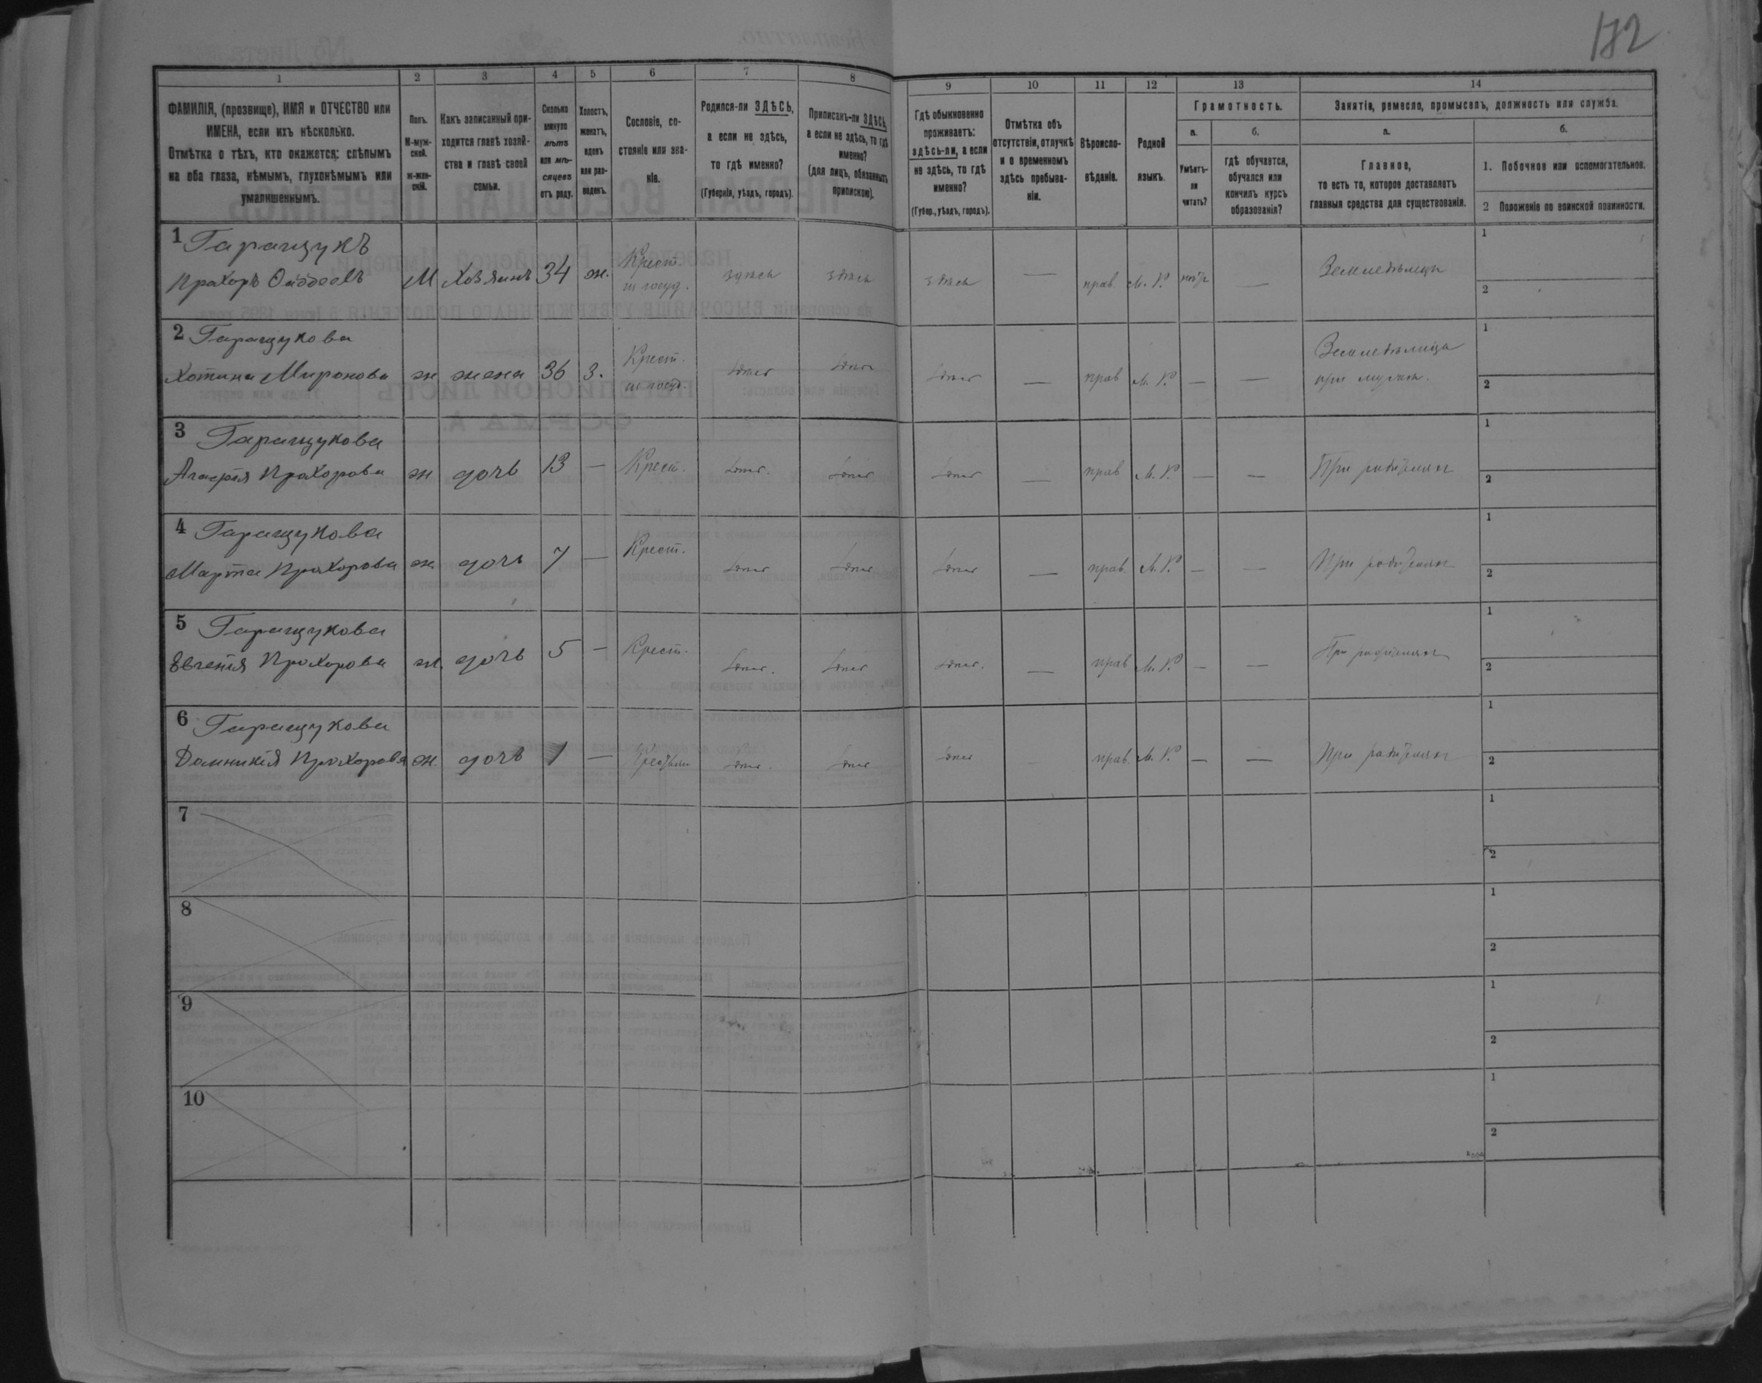 172
1 2 3 4 5 6 7 8 9 10 11 12 13 14
ФАМИЛІЯ, (прозвище), ИМЯ и ОТЧЕСТВО или
ИМЕНА, если ихъ нѣсколько.
Отмѣтка о тѣхъ, кто окажется: слѣпымъ
на оба глаза, нѣмымъ, глухонѣмымъ или
умалишеннымъ.
Полъ.
М-муж-
ской.
ж-жен-
скій.
Какъ записанный при-
ходится главѣ хозяй-
ства и главѣ своей
семьи.
Сколько
минуло
лѣтъ
или мѣ-
сяцевъ
отъ роду.
Холостъ,
женатъ,
вдовъ
или раз-
веденъ.
Сословіе, со-
стояніе или зва-
ніе.
Родился-ли ЗДѢСЬ,
а если не здѣсь,
то гдѣ именно?
(Губернія, уѣздъ, городъ).
Приписанъ-ли ЗДѢСЬ,
а если не здѣсь, то гдѣ
именно?
(для лицъ, обязанныхъ
припискою).
Гдѣ обыкновенно
проживаетъ:
здѣсь-ли, а если
не здѣсь, то гдѣ
именно?
(Губер., уѣздъ, городъ).
Отмѣтка объ
отсутствіи, отлучкѣ
и о временномъ
здѣсь пребыва-
ніи.
Вѣроиспо-
вѣданіе.
Родной
языкъ.
Грамотность.
а.
Умѣетъ-
ли
читать?
б.
гдѣ обучается,
обучался или
кончилъ курсъ
образованія?
Занятіе, ремесло, промыселъ, должность или служба.
а.
Главное,
то есть то, которое доставляетъ
главныя средства для существованія.
б.
1. Побочное или вспомогательное.
2 Положеніе по воинской повинности.
1 Гаращукъ
Прохоръ М Хозяинъ 34 ж. Крест. здѣсь здѣсь здѣсь — прав. М. Р. — Земледѣлецъ 1 2
2 Гаращукова
Миронова ж жена 36 з. Крест. — прав. М. Р. — — Земледѣлица
при мужѣ. 1 2
3 Гаращукова
Прохорова ж дочь 13 — Крест. — прав. М. Р. — — При родителях 1 2
4 Гаращукова
Марта Прохорова ж дочь 7 — Крест. — прав. М. Р. — — При родителях 1 2
5 Гаращукова
Евгенія Прохорова ж дочь 5 — Крест. — прав. М. Р. — — При родителях 1 2
6 Гаращукова
Домникія Прохорова ж. дочь 1 — прав. М. Р. — — При родителях 1 2
7 1 2
8 1 2
9 1 2
10 1 2